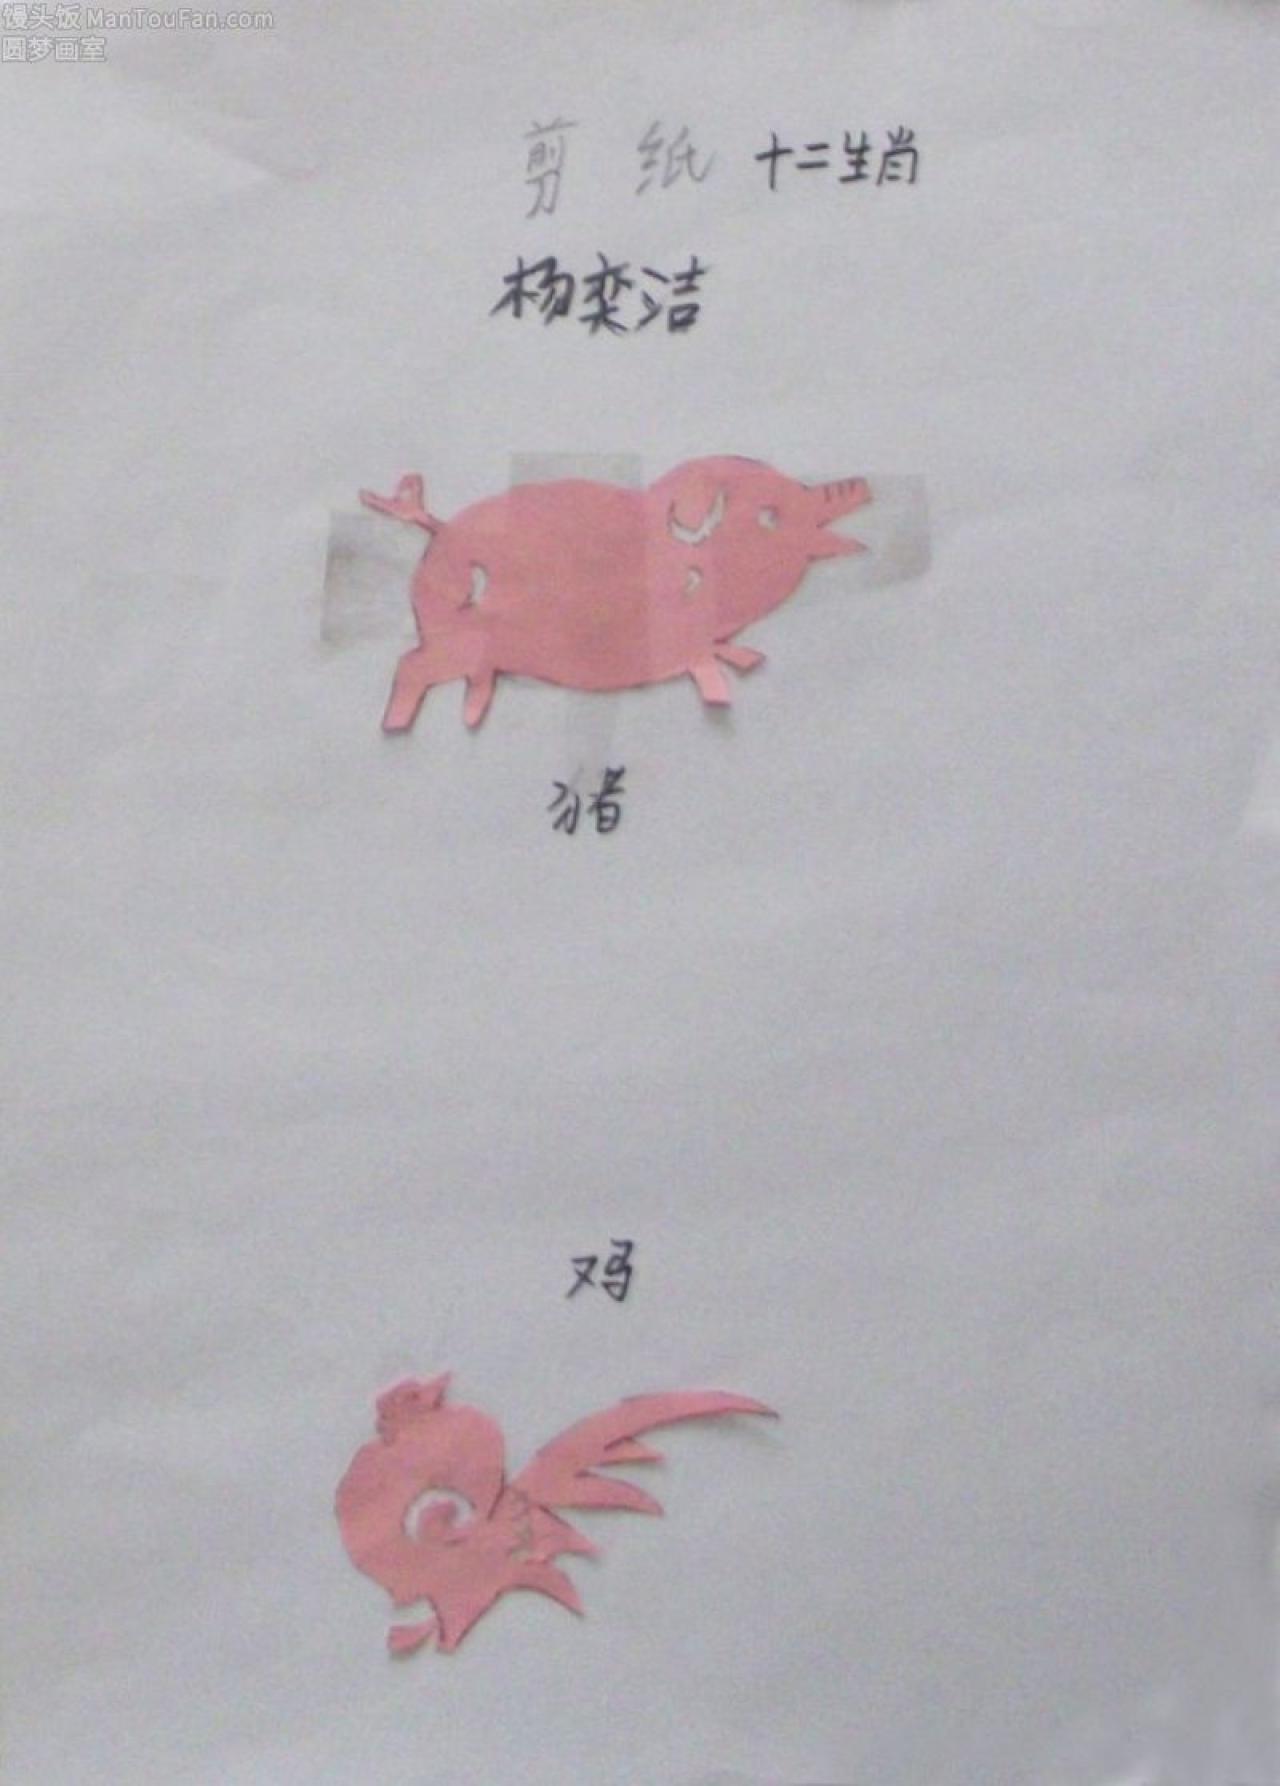 馒头饭ManTouFan.com
圆梦画室
剪 纸 十二生肖
杨奕洁
猪
鸡